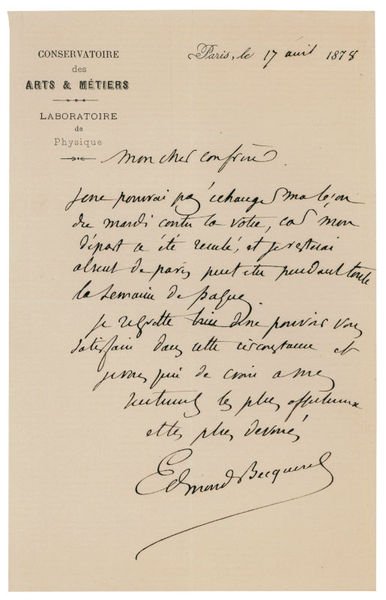 CONSERVATOIRE
des
ARTS & MÉTIERS
LABORATOIRE
de
Physique
Paris, le 17 avril 1878
Mon cher confrère
je ne pourrai pas échanger ma leçon
de mardi contre la votre, car mon
départ a été reculé, et je serai
absent de paris peut être pendant toute
la semaine de paques.
je regrette bien de ne pouvoir vous
satisfaire dans cette circonstance et
je vous prie de croire a mes
sentiments les plus affectueux
et les plus dévoués
Edmond Becquerel